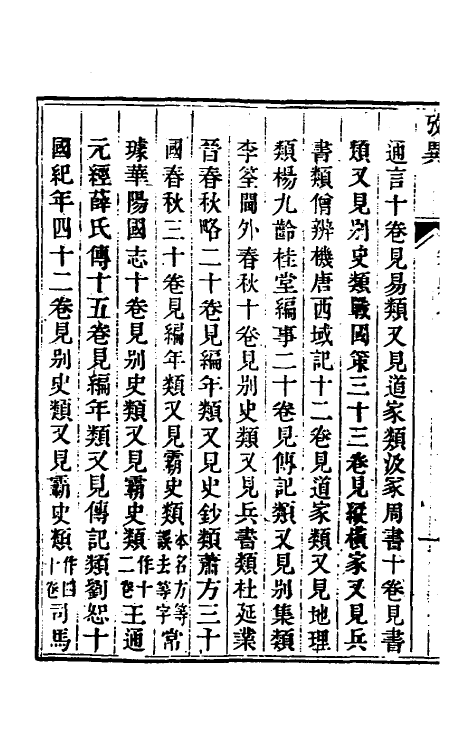 攷異
通言十卷見易類又見道家類汲冢周書十卷見書
類又見別史類戰國策三十三卷見縱橫家又見兵
書類僧辨機唐西域記十二卷見道家類又見地理
類楊九齡桂堂編事二十卷見傳記類又見別集類
李筌閫外春秋十卷見別史類又見兵書類杜延業
晉春秋略二十卷見編年類又見史鈔類蕭方三十
國春秋三十卷見編年類又見霸史類本名方等誤去等字常
璩華陽國志十卷見別史類又見霸史類作十二卷王通
元經薛氏傳十五卷見編年類又見傳記類劉恕十
國紀年四十二卷見別史類又見霸史類作四十卷司馬